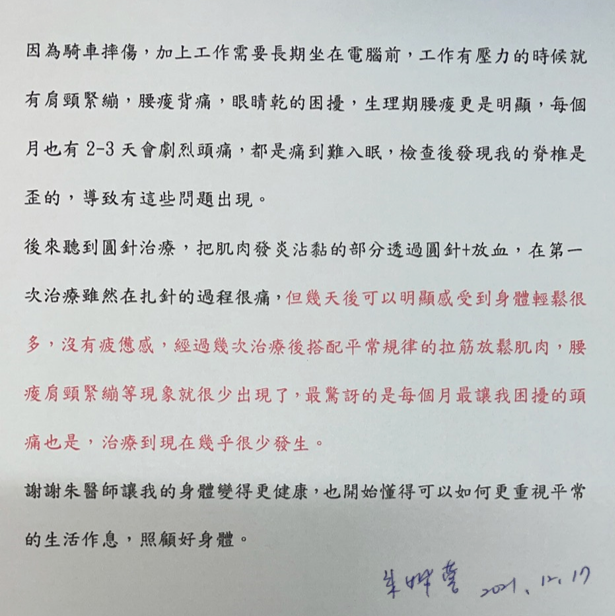 因為騎車摔傷，加上工作需要長期坐在電腦前，工作有壓力的時候就
有肩頸緊繃，腰痠背痛，眼睛乾的困擾，生理期腰痠更是明顯，每個
月也有 2-3 天會劇烈頭痛，都是痛到難入眠，檢查後發現我的脊椎是
歪的，導致有這些問題出現。
後來聽到圓針治療，把肌肉發炎沾黏的部分透過圓針+放血，在第一
次治療雖然在扎針的過程很痛，但幾天後可以明顯感受到身體輕鬆很
多，沒有疲憊感，經過幾次治療後搭配平常規律的拉筋放鬆肌肉，腰
痠肩頸緊繃等現象就很少出現了，最驚訝的是每個月最讓我困擾的頭
痛也是，治療到現在幾乎很少發生。
謝謝朱醫師讓我的身體變得更健康，也開始懂得可以如何更重視平常
的生活作息，照顧好身體。
2021.12.17